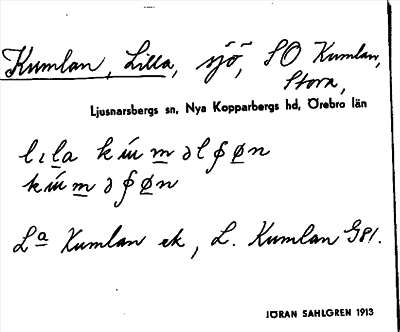 Kumlan, Lilla, sjö, SO Kumlan,
Stora,
Ljusnarsbergs sn, Nya Kopparbergs hd, Örebro län
Lª Kumlan ek, L. Kumlan G81.
JÖRAN SAHLGREN 1913